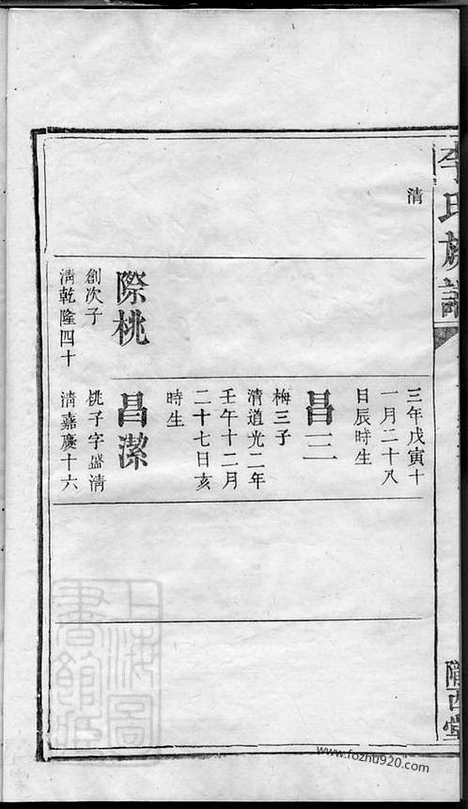 李氏族譜
隴西堂
清
際桃
創次子
清乾隆四十
三年戊寅十
一月二十八
日辰時生
昌三
梅三子
清道光二年
壬午十二月
二十七日亥
時生
昌潔
桃子字盛清
清嘉慶十六
上海圖
書館藏
www.fozhu920.com